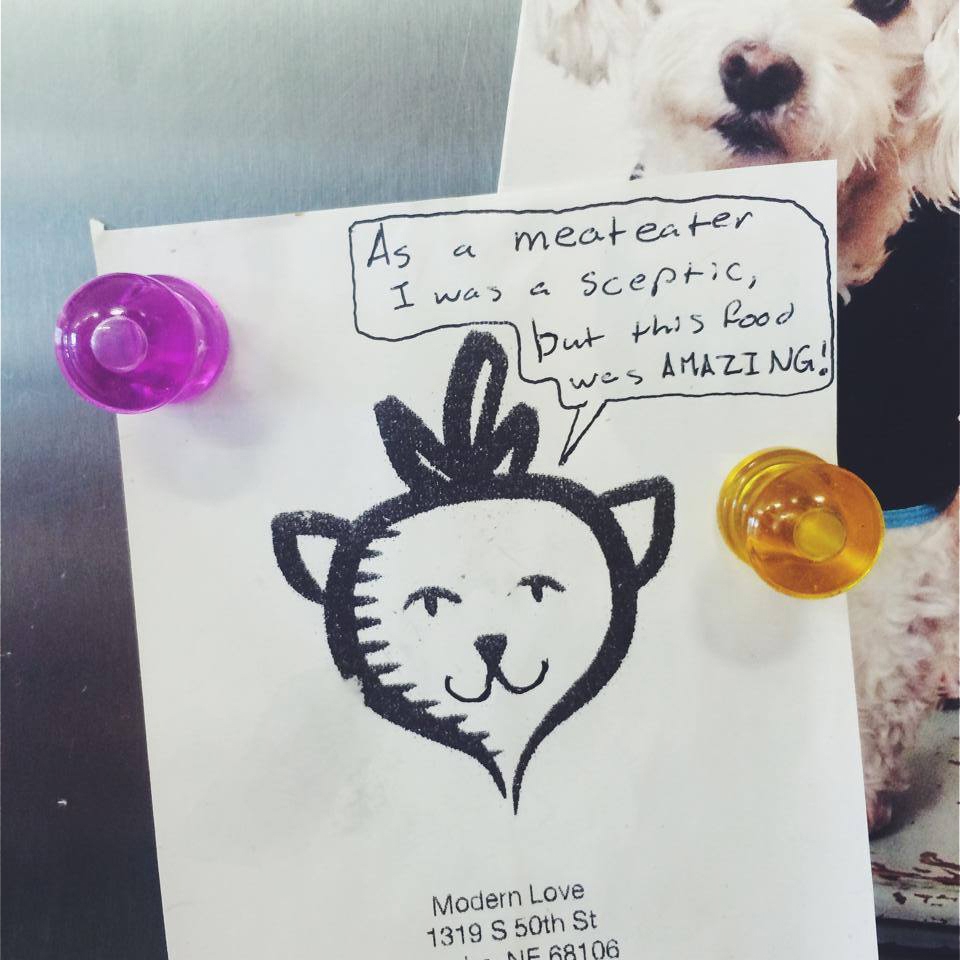 As a meateater
I was a sceptic,
but this food
was AMAZING!
Modern Love
1319 S 50th St
NE 68106